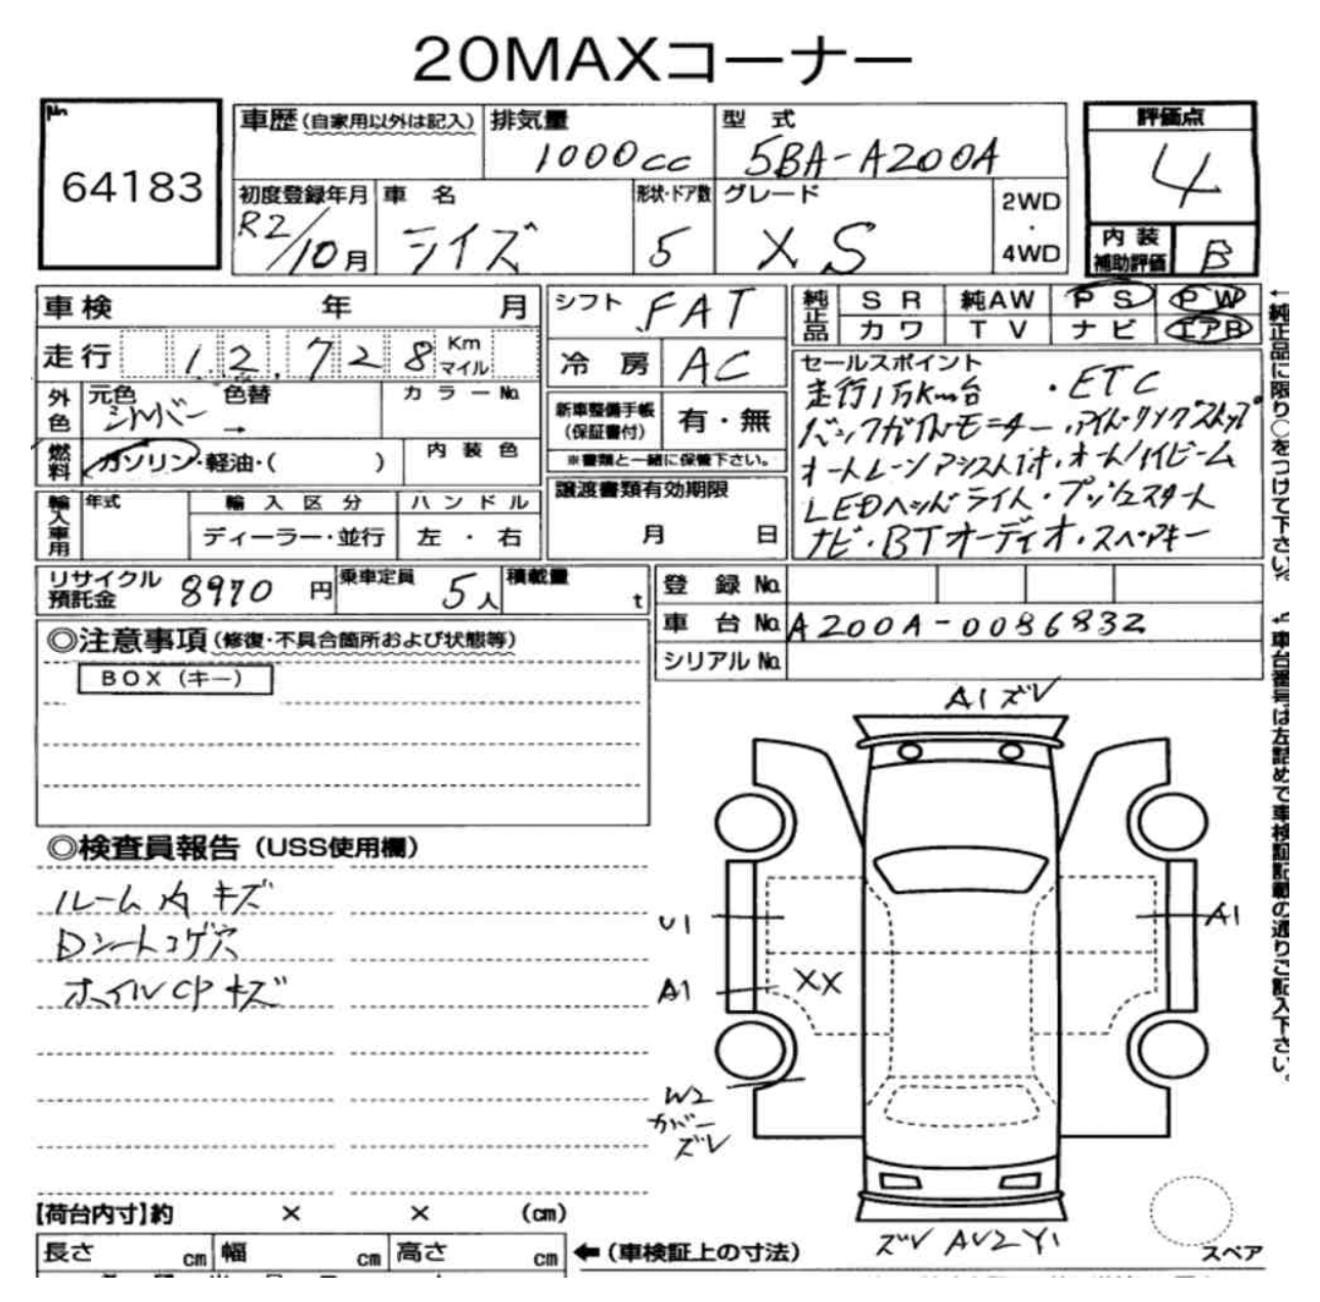 20MAXコーナー
64183
車歴(自家用以外は記入) 排気量 1000cc 型式 5BA-A200A
評価点 4
初度登録年月 R2/10月 車名 ライズ 形状・ドア数 5 グレード XS 2WD・4WD
内装補助評価 B
車検 年 月 シフト FAT
純正品 SR 純AW PS PW
カワ TV ナビ エアB
走行 12,728 Km マイル 冷房 AC
外色 元色 シルバー 色替 → カラーNo.
新車整備手帳(保証書付) 有・無
※書類と一緒に保管下さい。
燃料 ガソリン・軽油・( ) 内装色
輸入車用 年式 輸入区分 ハンドル
ディーラー・並行 左・右
譲渡書類有効期限
月 日
セールスポイント
走行1万km台 ・ETC
バックガイドモニター・アイドリングストップ
オートレーンアシスト・オートハイビーム
LEDヘッドライト・プッシュスタート
ナビ・BTオーディオ・スペアキー
←純正品に限り○をつけて下さい。
リサイクル預託金 8970 円 乗車定員 5人 積載量 t
登録No.
車台No. A200A-0086832
シリアルNo.
←車台番号は左詰めで車検証記載の通りご記入下さい。
◎注意事項(修復・不具合箇所および状態等)
BOX(キー)
◎検査員報告(USS使用欄)
ルーム内キズ
Dシートコゲ穴
ホイルCPキズ
A1ズレ
U1
A1
A1
XX
W2
カバー
ズレ
ズレ AU2 Y1
スペア
【荷台内寸】約 × × (cm)
長さ cm 幅 cm 高さ cm ←(車検証上の寸法)